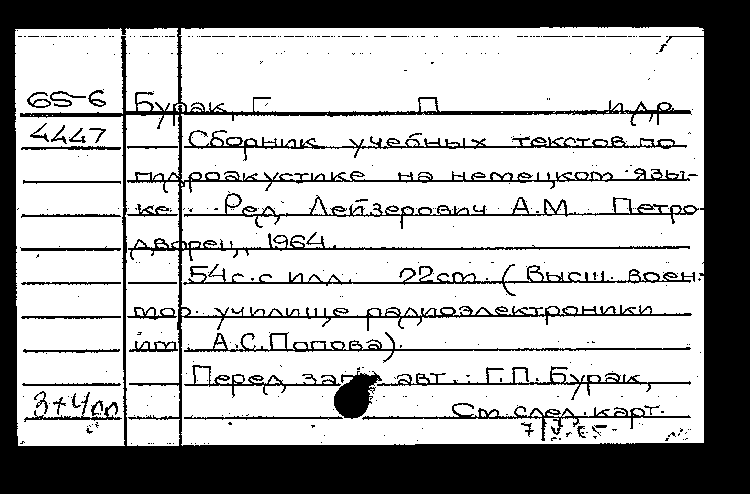 65-6 Бурак, Г П и др
4447 Сборник учебных текстов по
гидроакустике на немецком язы-
ке. Ред. Лейзерович А.М. Петро-
дворец, 1964.
54с. с илл. 22см. (Высш. воен.-
мор. училище радиоэлектроники
им. А.С.Попова).
Перед загл. авт.: Г.П. Бурак,
См. след. карт.